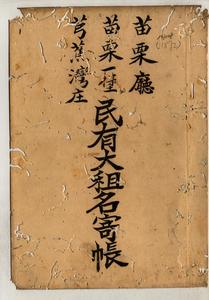 苗栗廳
苗栗一堡
芎蕉灣庄
民有大租名寄帳